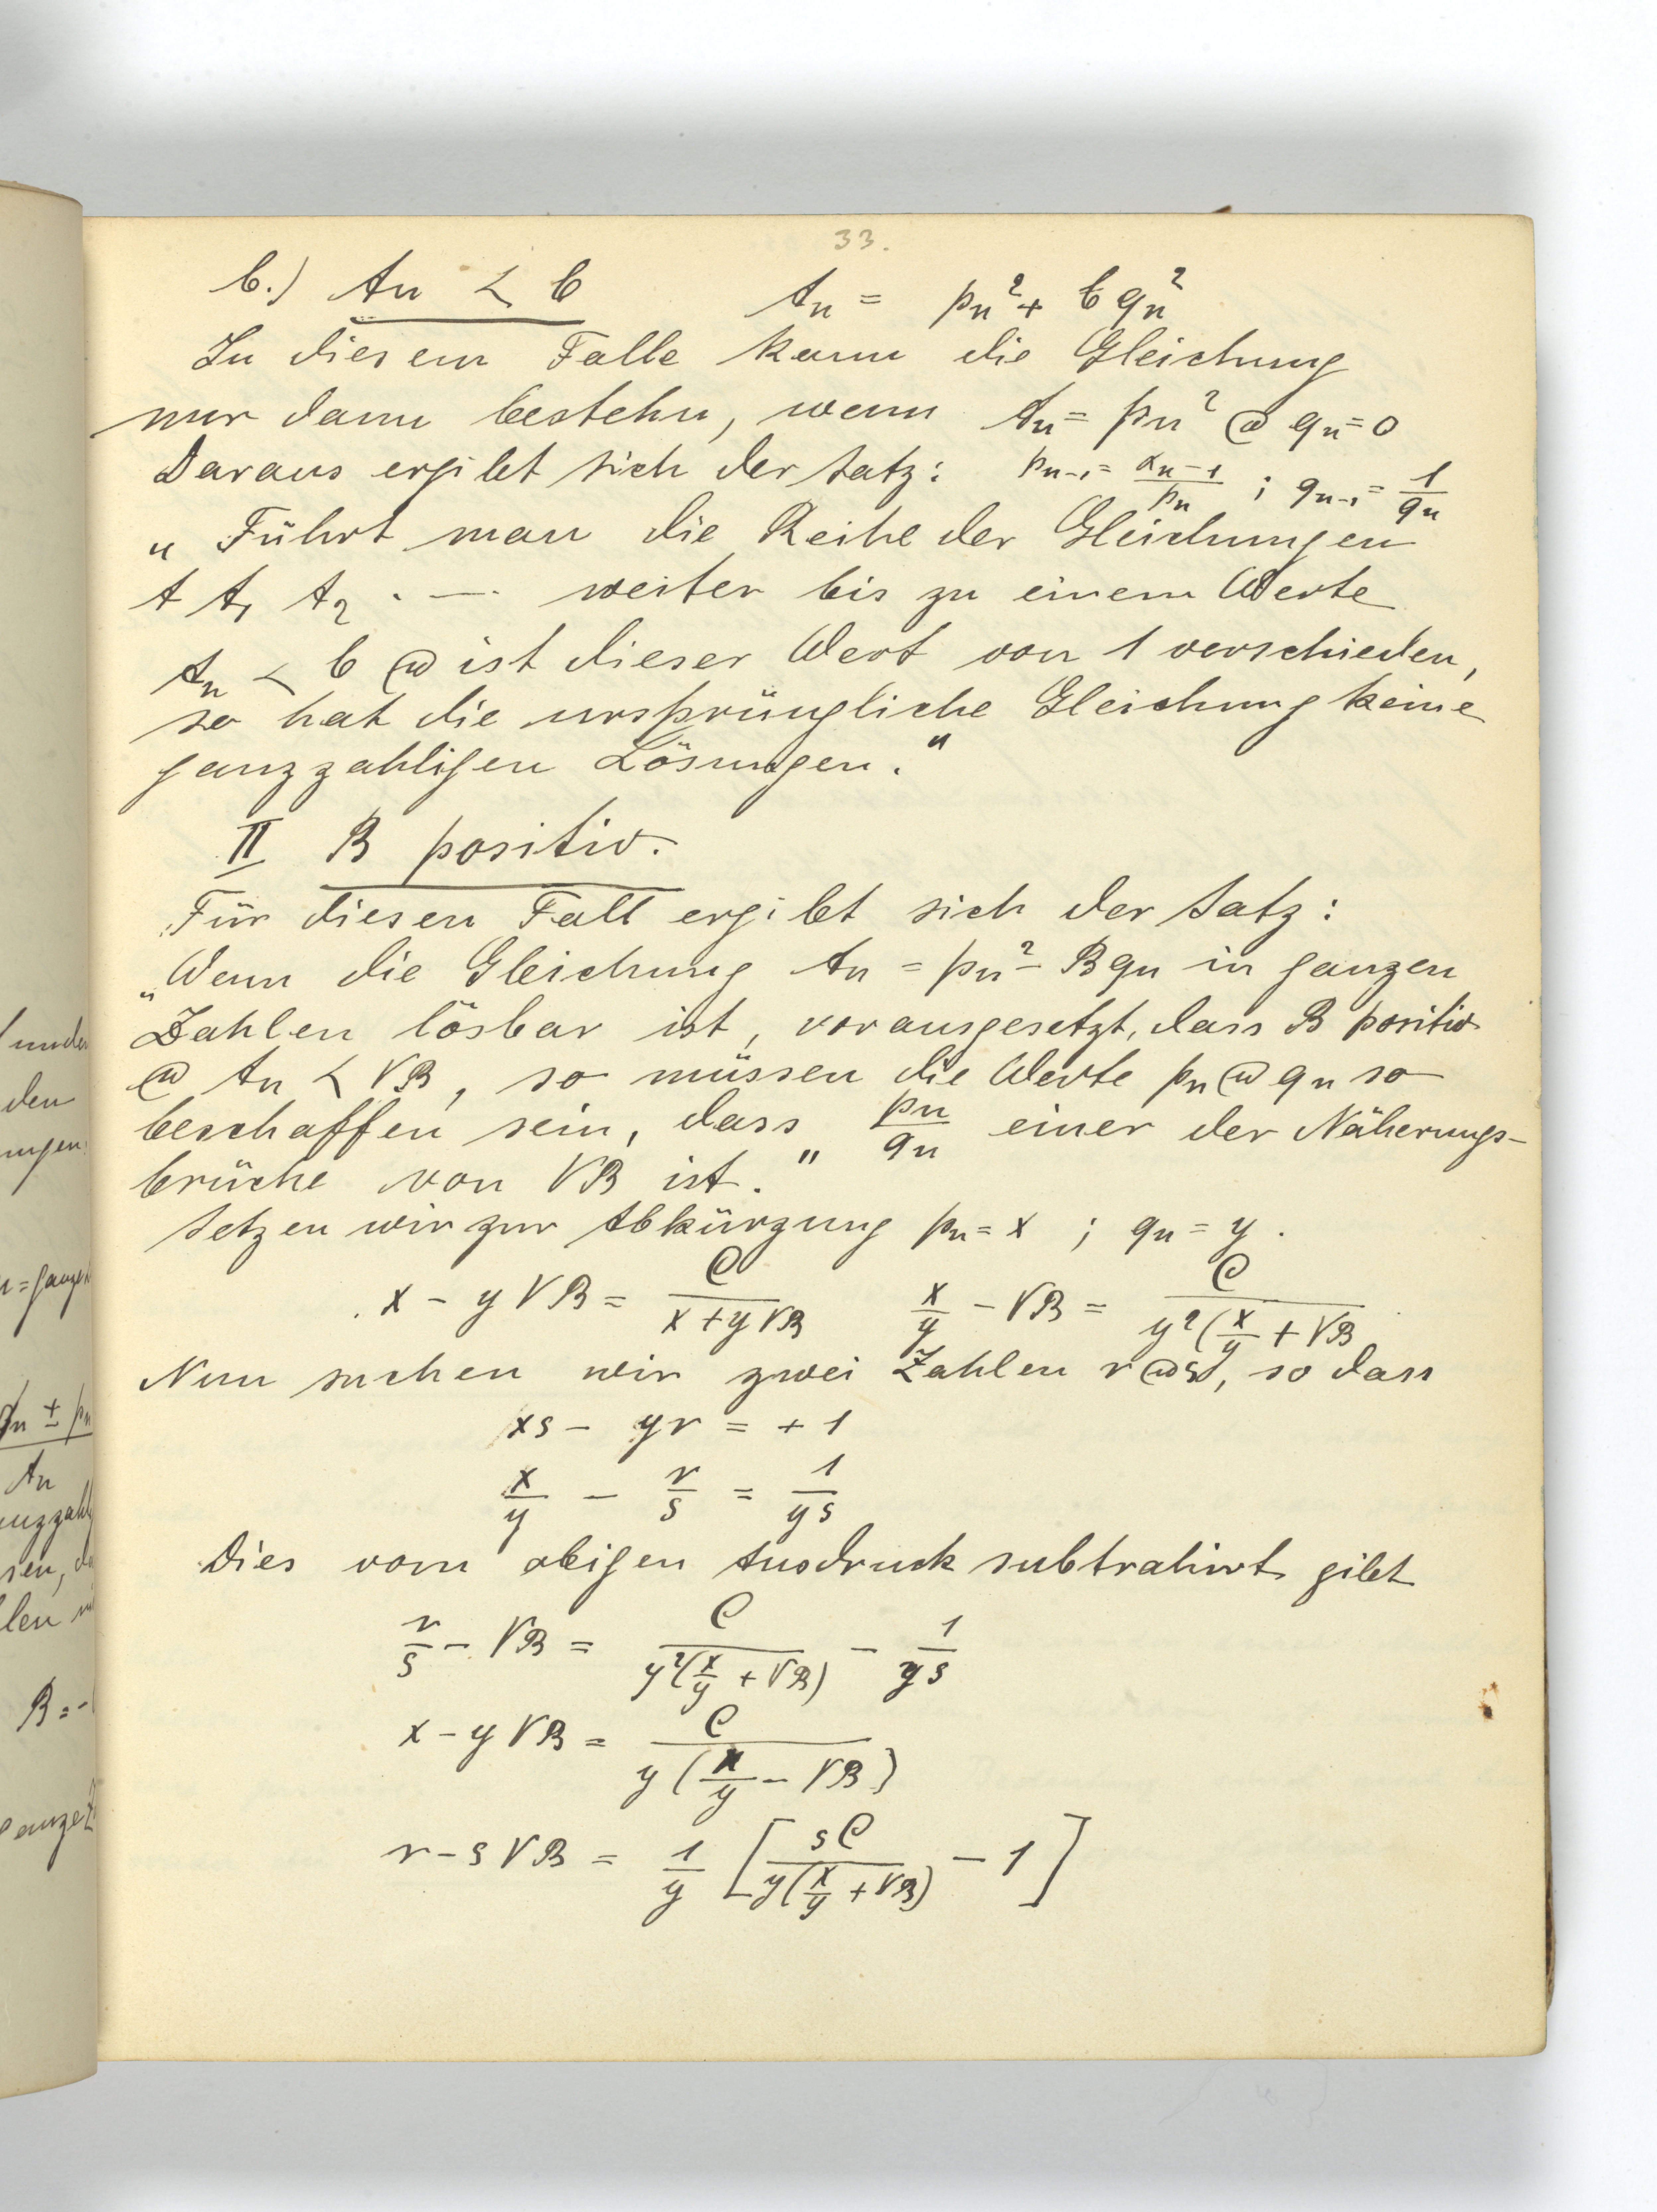 33.
b.) An < b   An = pn² + b qn²
In diesem Falle kann die Gleichung
nur dann bestehn, wenn An = pn² @ qn = 0
Daraus ergibt sich der Satz: pn-1 = αn-1/pn ; qn-1 = 1/qn
„Führt man die Reihe der Gleichungen
A A1 A2 . — . weiter bis zu einem Werte
An < b @ ist dieser Wert von 1 verschieden,
so hat die ursprüngliche Gleichung keine
ganzzahligen Lösungen."
II B positiv.
Für diesen Fall ergibt sich der Satz:
„Wenn die Gleichung An = pn² - Bqn in ganzen
Zahlen lösbar ist, vorausgesetzt, dass B positiv
@ An < √B, so müssen die Werte pn @ qn so
beschaffen sein, dass pn/qn einer der Näherungs-
brüche von √B ist."
Setzen wir zur Abkürzung pn = x ; qn = y .
x - y√B = C/(x + y√B)   x/y - √B = C/y²(x/y + √B
Nun suchen wir zwei Zahlen r @ s, so dass
xs - yr = + 1
x/y - r/s = 1/ys
Dies vom obigen Ausdruck subtrahirt gibt
r/s - √B = C/y²(x/y + √B) - 1/ys
x - y√B = C/y(x/y - √B)
r - s√B = 1/y [sC/y(x/y + √B) - 1]